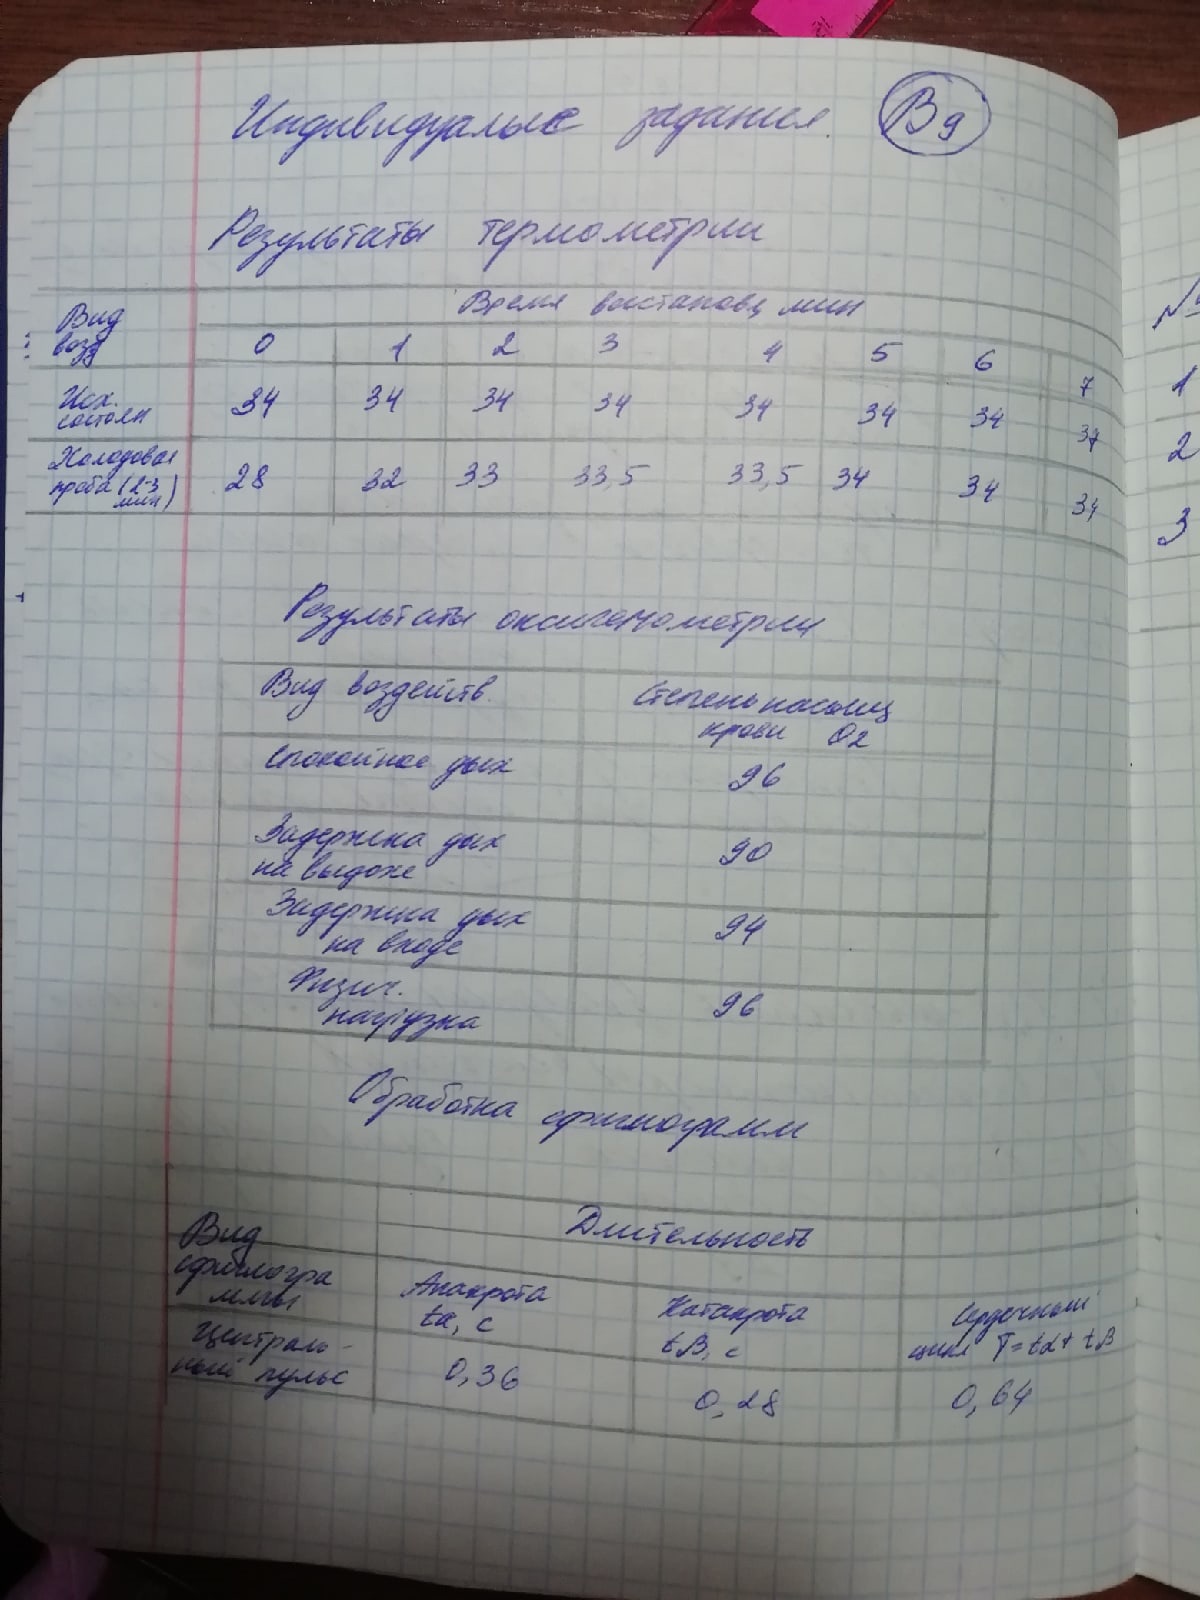 Индивидуалые задания. В9
Результаты термометрии
Вид возд
Время восстановл мин
0 1 2 3 4 5 6 7
Исх. состоян
34 34 34 34 34 34 34 34
Холодовая проба (2-3 мин)
28 32 33 33,5 33,5 34 34 34
Результаты оксигемометрии
Вид воздейств.
Степень насыщ
крови O2
Спокойное дых 96
Задержка дых
на выдохе 90
Задержка дых
на вдохе 94
Физич.
нагрузка 96
Обработка сфигмограмм
Вид
сфигмогра
ммы
Длительность
Анакрота
tα, с
Катакрота
tβ, с
Сердечный
цикл T=tα+tβ
Централь-
ный пульс
0,36 0,28 0,64
№
1
2
3